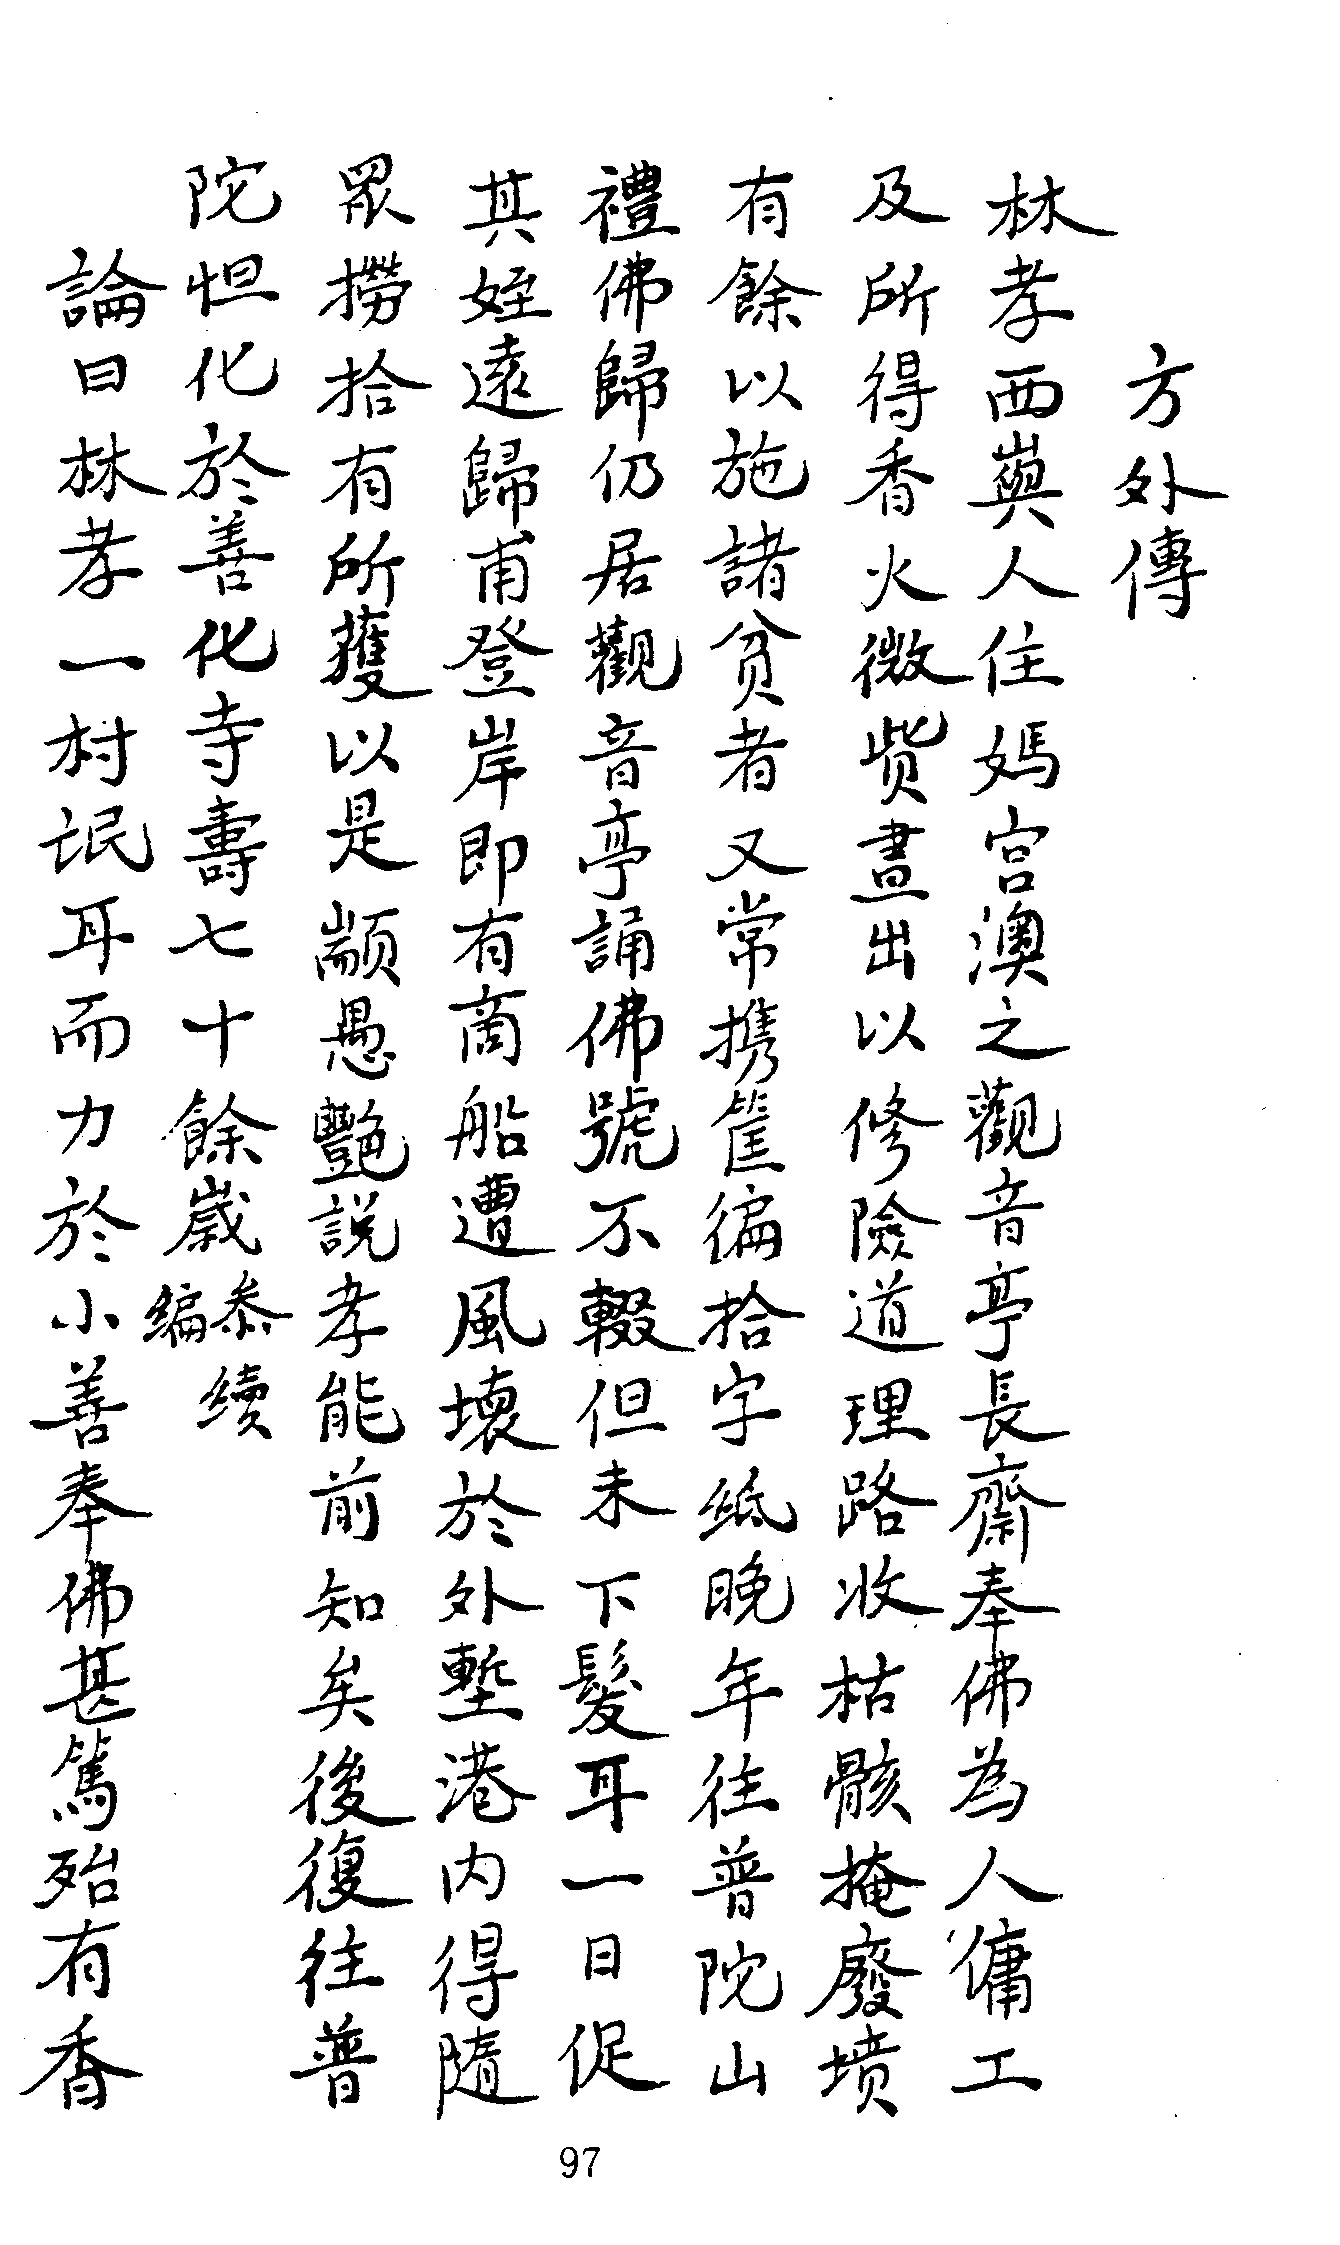 方外傳
林孝西嶼人住媽宮澳之觀音亭長齋奉佛為人傭工
及所得香火微貲盡出以修險道理路收枯骸掩廢墳
有餘以施諸貧者又常携筐徧拾字紙晚年往普陀山
禮佛歸仍居觀音亭誦佛號不輟但未下髮耳一日促
其姪遠歸甫登岸即有商船遭風壞於外塹港內得隨
眾撈拾有所獲以是顓愚艷説孝能前知矣後復往普
陀怛化於善化寺壽七十餘歲
叅續
編
論曰林孝一村氓耳而力於小善奉佛甚篤殆有香
97